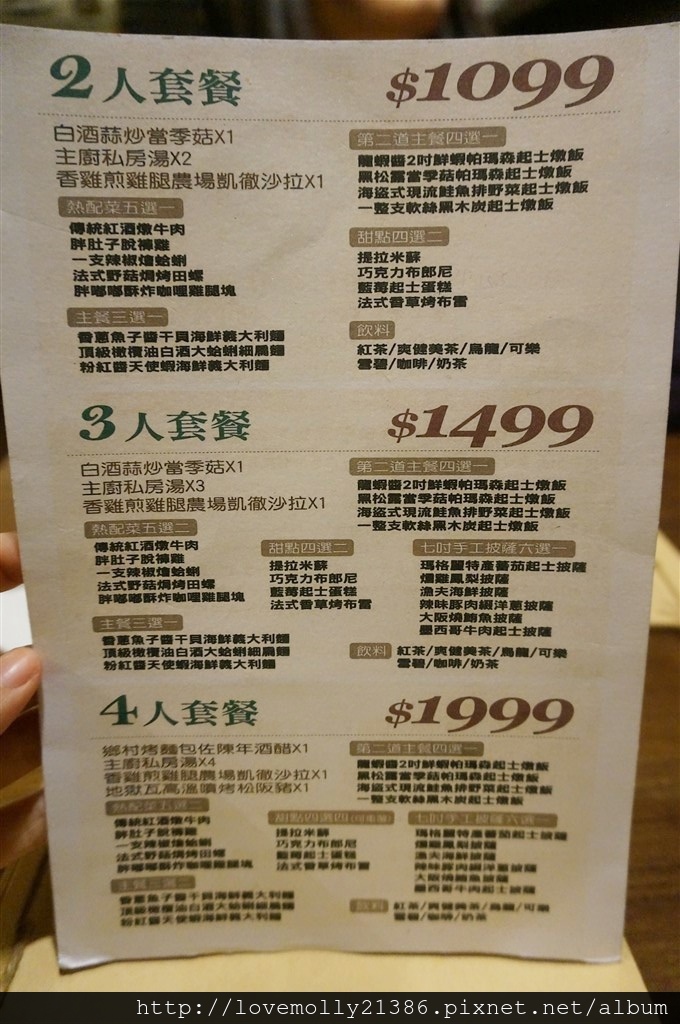 2人套餐 $1099
白酒蒜炒當季菇X1
主廚私房湯X2
香雞煎雞腿農場凱徹沙拉X1
熱配菜五選一
傳統紅酒燉牛肉
胖肚子脫褲雞
一支辣椒燴蛤蜊
法式野菇焗烤田螺
胖嘟嘟酥炸咖哩雞腿塊
主餐三選一
香蔥魚子醬干貝海鮮義大利麵
頂級橄欖油白酒大蛤蜊細扁麵
粉紅醬天使蝦海鮮義大利麵
第二道主餐四選一
龍蝦醬2吋鮮蝦帕瑪森起士燉飯
黑松露當季菇帕瑪森起士燉飯
海盜式現流鮭魚排野菜起士燉飯
一整支軟絲黑木炭起士燉飯
甜點四選二
提拉米蘇
巧克力布郎尼
藍莓起士蛋糕
法式香草烤布雷
飲料
紅茶/爽健美茶/烏龍/可樂
雪碧/咖啡/奶茶
3人套餐 $1499
白酒蒜炒當季菇X1
主廚私房湯X3
香雞煎雞腿農場凱徹沙拉X1
熱配菜五選二
傳統紅酒燉牛肉
胖肚子脫褲雞
一支辣椒燴蛤蜊
法式野菇焗烤田螺
胖嘟嘟酥炸咖哩雞腿塊
主餐三選一
香蔥魚子醬干貝海鮮義大利麵
頂級橄欖油白酒大蛤蜊細扁麵
粉紅醬天使蝦海鮮義大利麵
第二道主餐四選一
龍蝦醬2吋鮮蝦帕瑪森起士燉飯
黑松露當季菇帕瑪森起士燉飯
海盜式現流鮭魚排野菜起士燉飯
一整支軟絲黑木炭起士燉飯
甜點四選二
提拉米蘇
巧克力布郎尼
藍莓起士蛋糕
法式香草烤布雷
七吋手工披薩六選一
瑪格麗特產蕃茄起士披薩
燻雞鳳梨披薩
漁夫海鮮披薩
辣味豚肉綴洋蔥披薩
大阪燒鮪魚披薩
墨西哥牛肉起士披薩
飲料 紅茶/爽健美茶/烏龍/可樂
雪碧/咖啡/奶茶
4人套餐 $1999
鄉村烤麵包佐陳年酒醋X1
主廚私房湯X4
香雞煎雞腿農場凱徹沙拉X1
地獄瓦高溫噴烤松阪豬X1
熱配菜五選二
傳統紅酒燉牛肉
胖肚子脫褲雞
一支辣椒燴蛤蜊
法式野菇焗烤田螺
胖嘟嘟酥炸咖哩雞腿塊
主餐三選二
香蔥魚子醬干貝海鮮義大利麵
頂級橄欖油白酒大蛤蜊細扁麵
粉紅醬天使蝦海鮮義大利麵
第二道主餐四選一
龍蝦醬2吋鮮蝦帕瑪森起士燉飯
黑松露當季菇帕瑪森起士燉飯
海盜式現流鮭魚排野菜起士燉飯
一整支軟絲黑木炭起士燉飯
甜點四選四
提拉米蘇
巧克力布郎尼
藍莓起士蛋糕
法式香草烤布雷
七吋手工披薩六選一
瑪格麗特產蕃茄起士披薩
燻雞鳳梨披薩
漁夫海鮮披薩
辣味豚肉綴洋蔥披薩
大阪燒鮪魚披薩
墨西哥牛肉起士披薩
飲料 紅茶/爽健美茶/烏龍/可樂
雪碧/咖啡/奶茶
http://lovemolly21386.pixnet.net/album